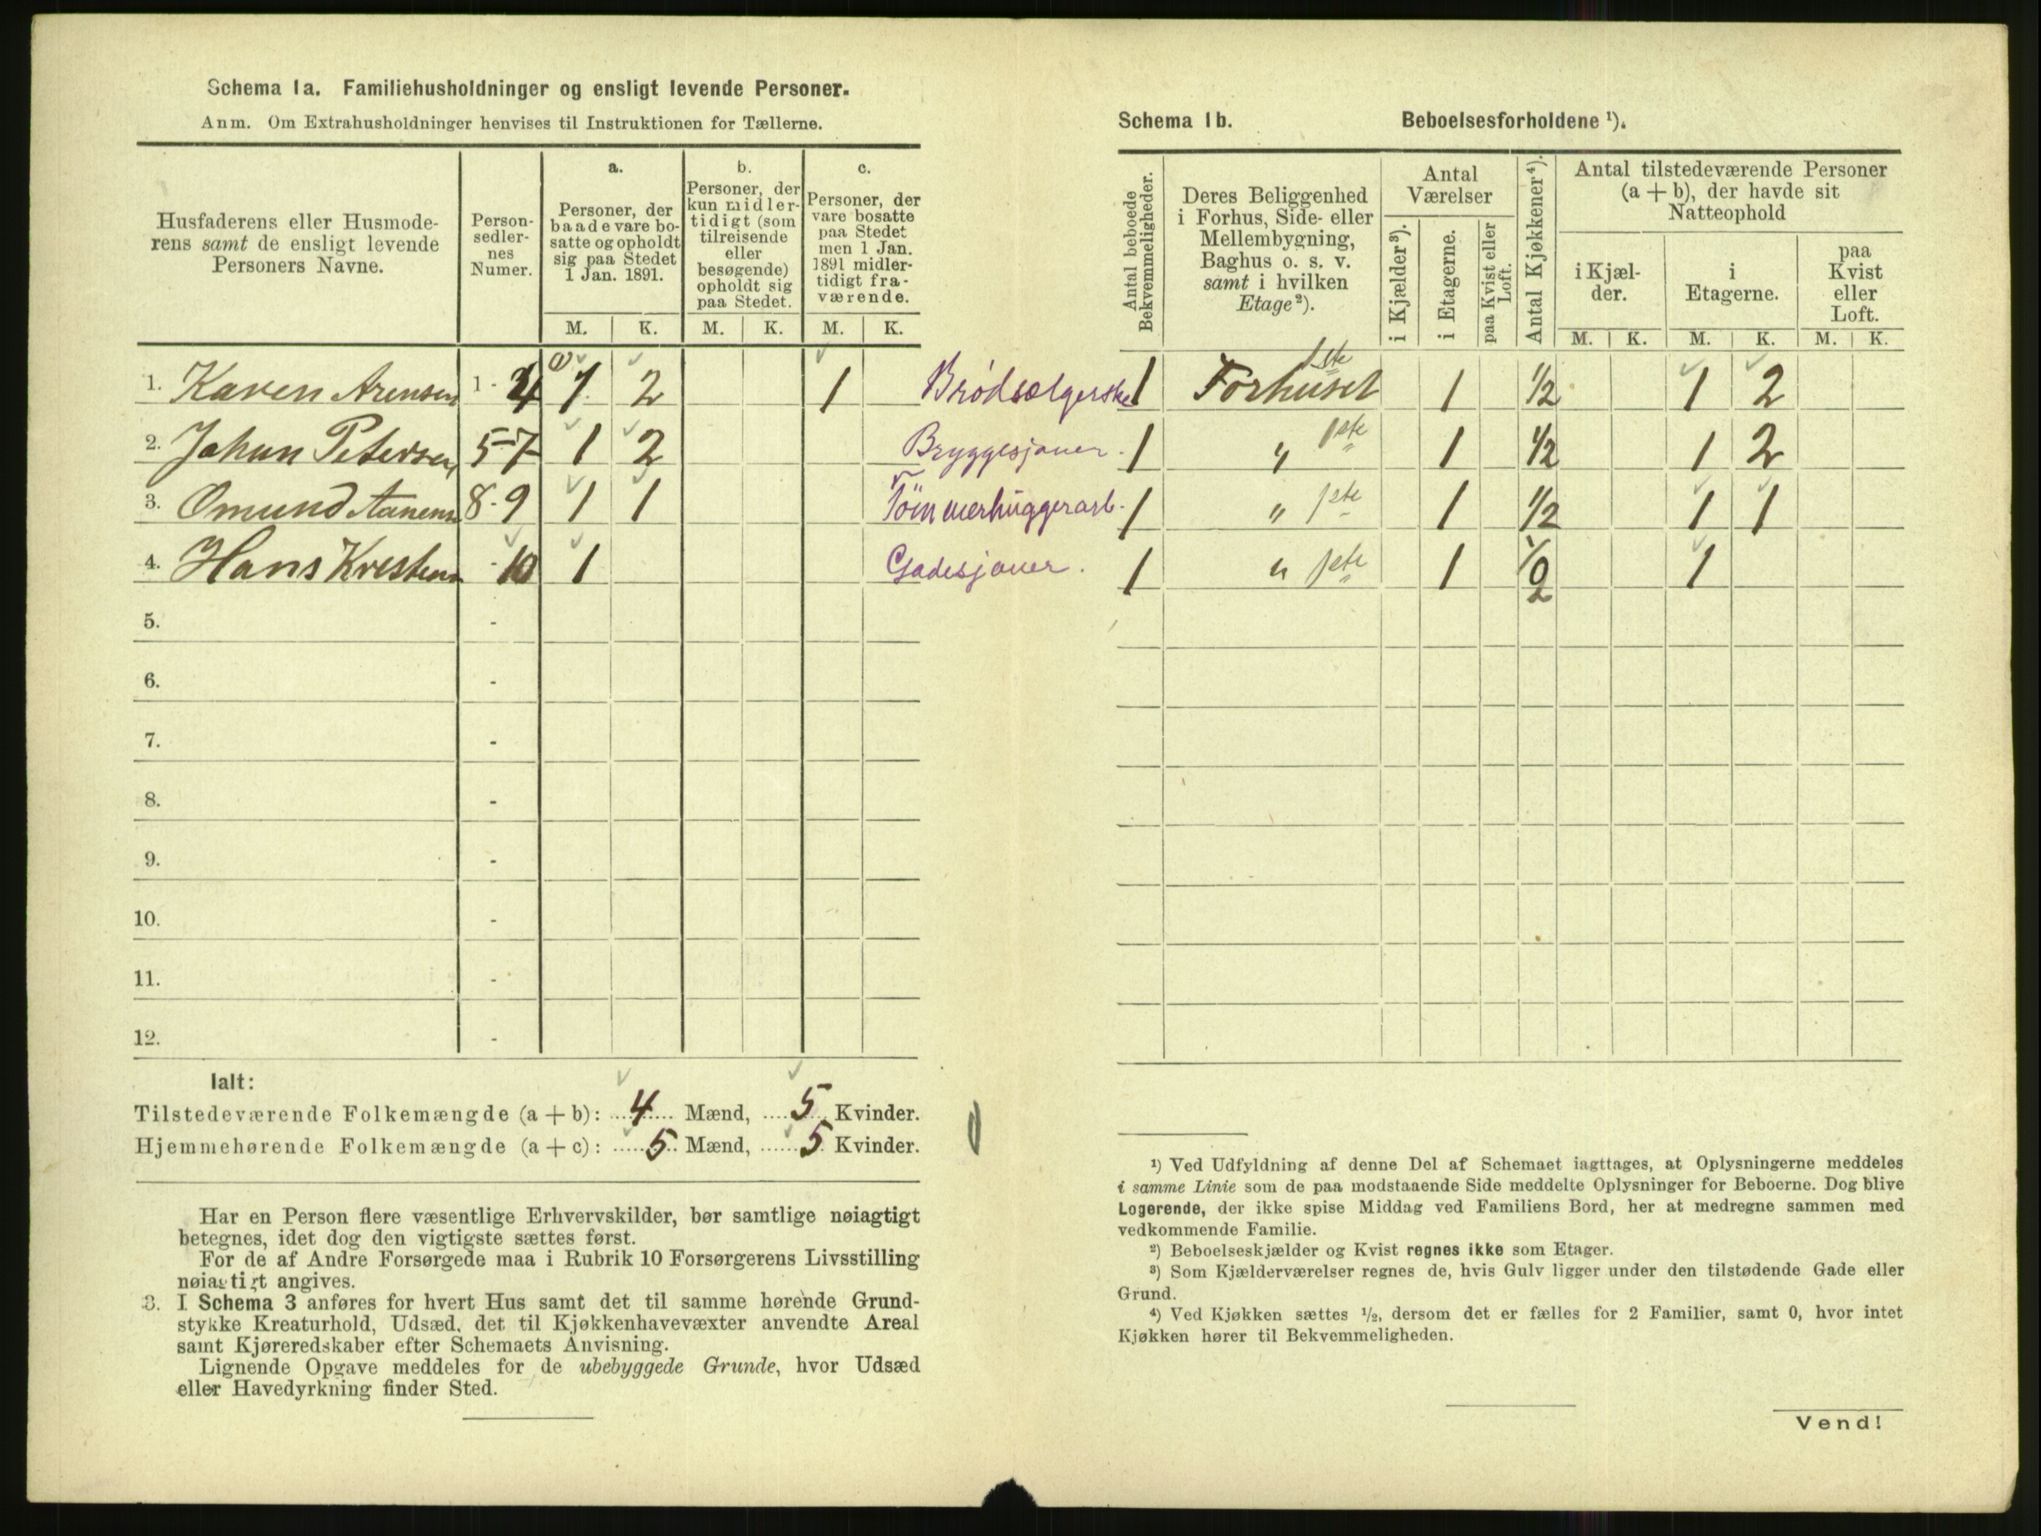 Schema 1a. Familiehusholdninger og ensligt levende Personer.
Anm. Om Extrahusholdninger henvises til Instruktionen for Tællerne.
Husfaderens eller Husmoderens samt de ensligt levende Personers Navne.
Personsedlernes Numer.
a. Personer, der baade vare bosatte og opholdt sig paa Stedet 1 Jan. 1891.
b. Personer, der kun midlertidigt (som tilreisende eller besøgende) opholdt sig paa Stedet.
c. Personer, der vare bosatte paa Stedet men 1 Jan. 1891 midlertidigt fraværende.
M. K. M. K. M. K.
1. Karen Arensen 1 - 4 (1) 1 2 1 Brødsælgerske
2. Johan Petersen 5-7 1 2 Bryggesjauer.
3. Omund Aanens 8-9 1 1 Tømmerhuggerarb.
4. Hans Kristens - 10 1 Gadesjauer.
5. -
6. -
7. -
8. -
9. -
10. -
11. -
12. -
Ialt:
Tilstedeværende Folkemængde (a + b): 4 Mænd, 5 Kvinder.
Hjemmehørende Folkemængde (a + c): 5 Mænd, 5 Kvinder.
Har en Person flere væsentlige Erhvervskilder, bør samtlige nøiagtigt
betegnes, idet dog den vigtigste sættes først.
For de af Andre Forsørgede maa i Rubrik 10 Forsørgerens Livsstilling
nøiagtigt angives.
8. I Schema 3 anføres for hvert Hus samt det til samme hørende Grund-
stykke Kreaturhold, Udsæd, det til Kjøkkenhavevæxter anvendte Areal
samt Kjøreredskaber efter Schemaets Anvisning.
Lignende Opgave meddeles for de ubebyggede Grunde, hvor Udsæd
eller Havedyrkning finder Sted.
Schema 1b. Beboelsesforholdene ¹).
Antal beboede Bekvemmeligheder.
Deres Beliggenhed i Forhus, Side- eller Mellembygning, Baghus o. s. v. samt i hvilken Etage ²).
Antal Værelser
i Kjælder ³).
i Etagerne.
paa Kvist eller Loft.
Antal Kjøkkener ⁴).
Antal tilstedeværende Personer (a + b), der havde sit Natteophold
i Kjælder.
i Etagerne.
paa Kvist eller Loft.
M. K. M. K. M. K.
1 Forhuset 1ste 1 1/2 1 2
1 " 1ste 1 1/2 1 2
1 " 1ste 1 1/2 1 1
1 " 1ste 1 1/2 1
¹) Ved Udfyldning af denne Del af Schemaet iagttages, at Oplysningerne meddeles
i samme Linie som de paa modstaaende Side meddelte Oplysninger for Beboerne. Dog blive
Logerende, der ikke spise Middag ved Familiens Bord, her at medregne sammen med
vedkommende Familie.
²) Beboelseskjælder og Kvist regnes ikke som Etager.
³) Som Kjælderværelser regnes de, hvis Gulv ligger under den tilstødende Gade eller
Grund.
⁴) Ved Kjøkken sættes ½, dersom det er fælles for 2 Familier, samt 0, hvor intet
Kjøkken hører til Bekvemmeligheden.
Vend!